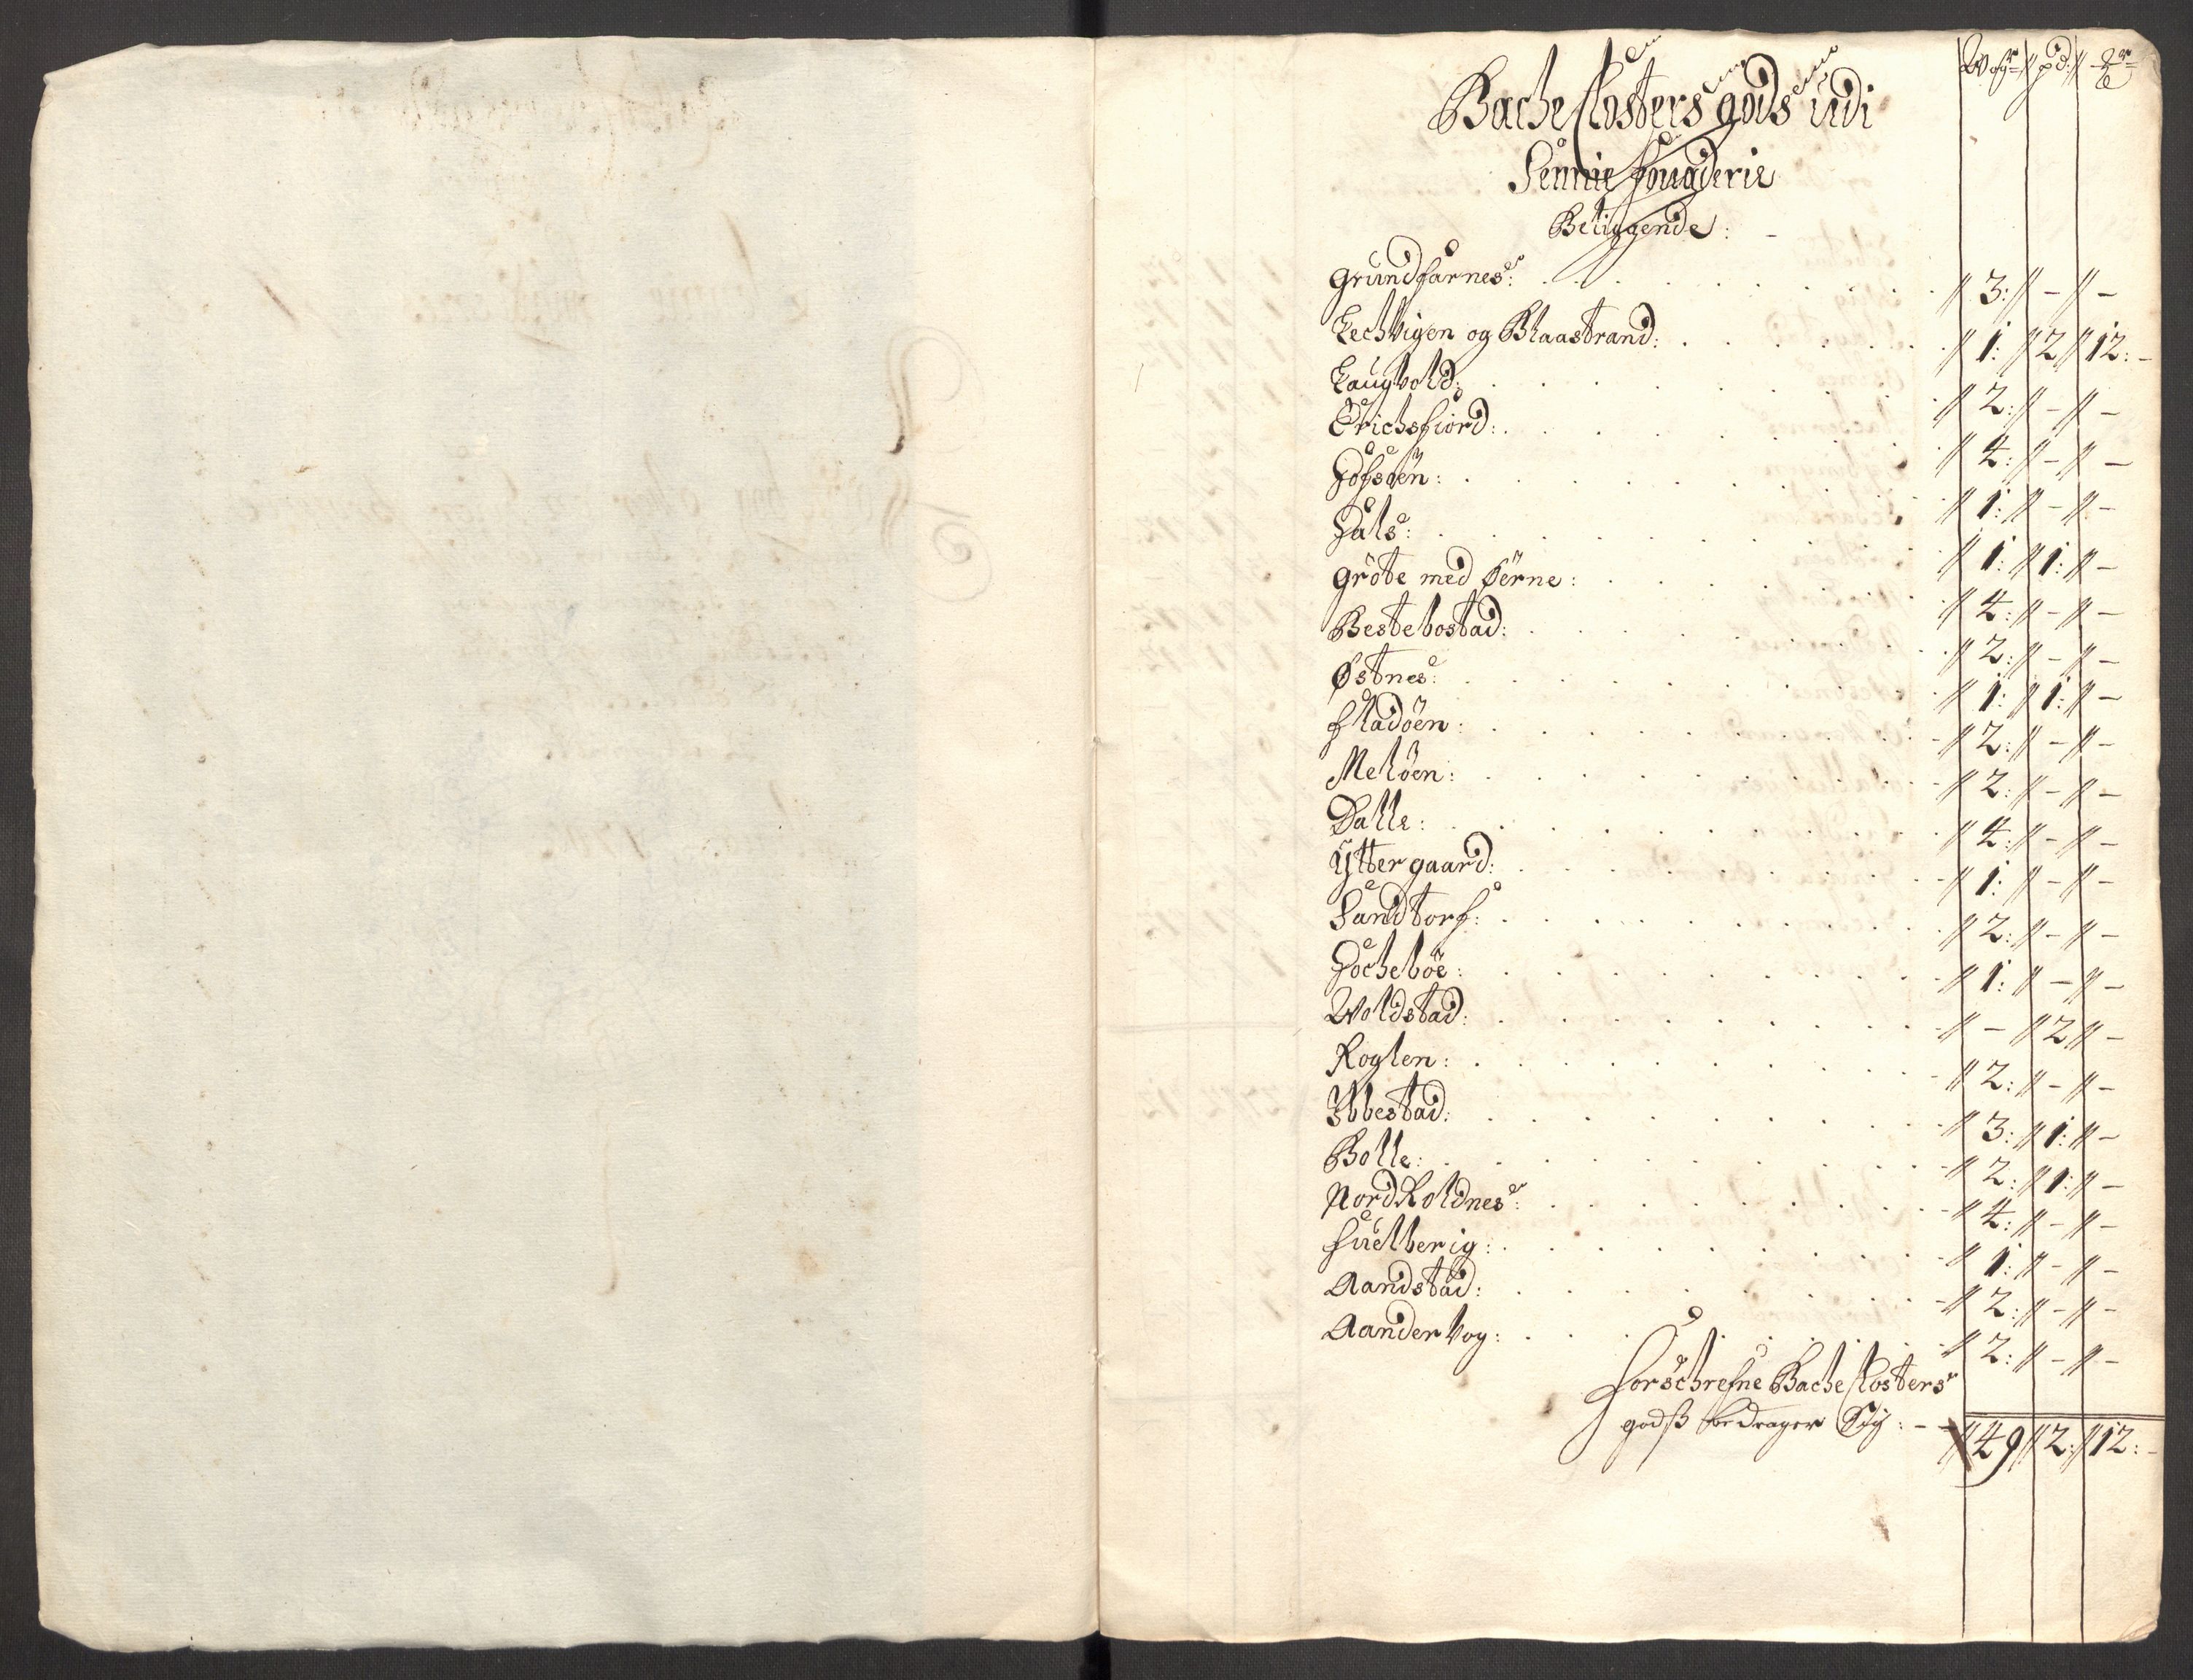 Wogr // pd: // ℔r
Bache Closters gods udi
Sennie fougderie
Beliggende: -
Grundfarnes: // 3: // - // -
Lechvigen og Blaastrand: // 1: // 2 // 12: -
Laugvold: // 2: // - // -
Erichsfiord: // 4: // - // -
Hofsøen: // 1: // - // -
Hals: // 1: // 1: // -
Grøte med Øerne: // 4: // - // -
Bestebostad: // 2: // - // -
Østnes: // 1: // 1: // -
fladøen: // 2: // - // -
Meløen: // 2: // - // -
Dalle: // 4: // - // -
Ytter gaard: // 1: // - // -
Sandtorf: // 2: // - // -
Hocheboe: // 1: // - // -
Woldstad: // - // 2 // -
Roglen: // 2: // - // -
Ibbestad: // 3: // 1: // -
Bolle: // 2: // 1: // -
Nord Roldnes: // 4: // - // -
fuelberig: // 1: // - // -
Aandstad: // 2: // - // -
Aander Vog: // 2: // - // -
Forschrefne Bache Closters
godsz bedrager Sig: - // 49 // 2: // 12: -